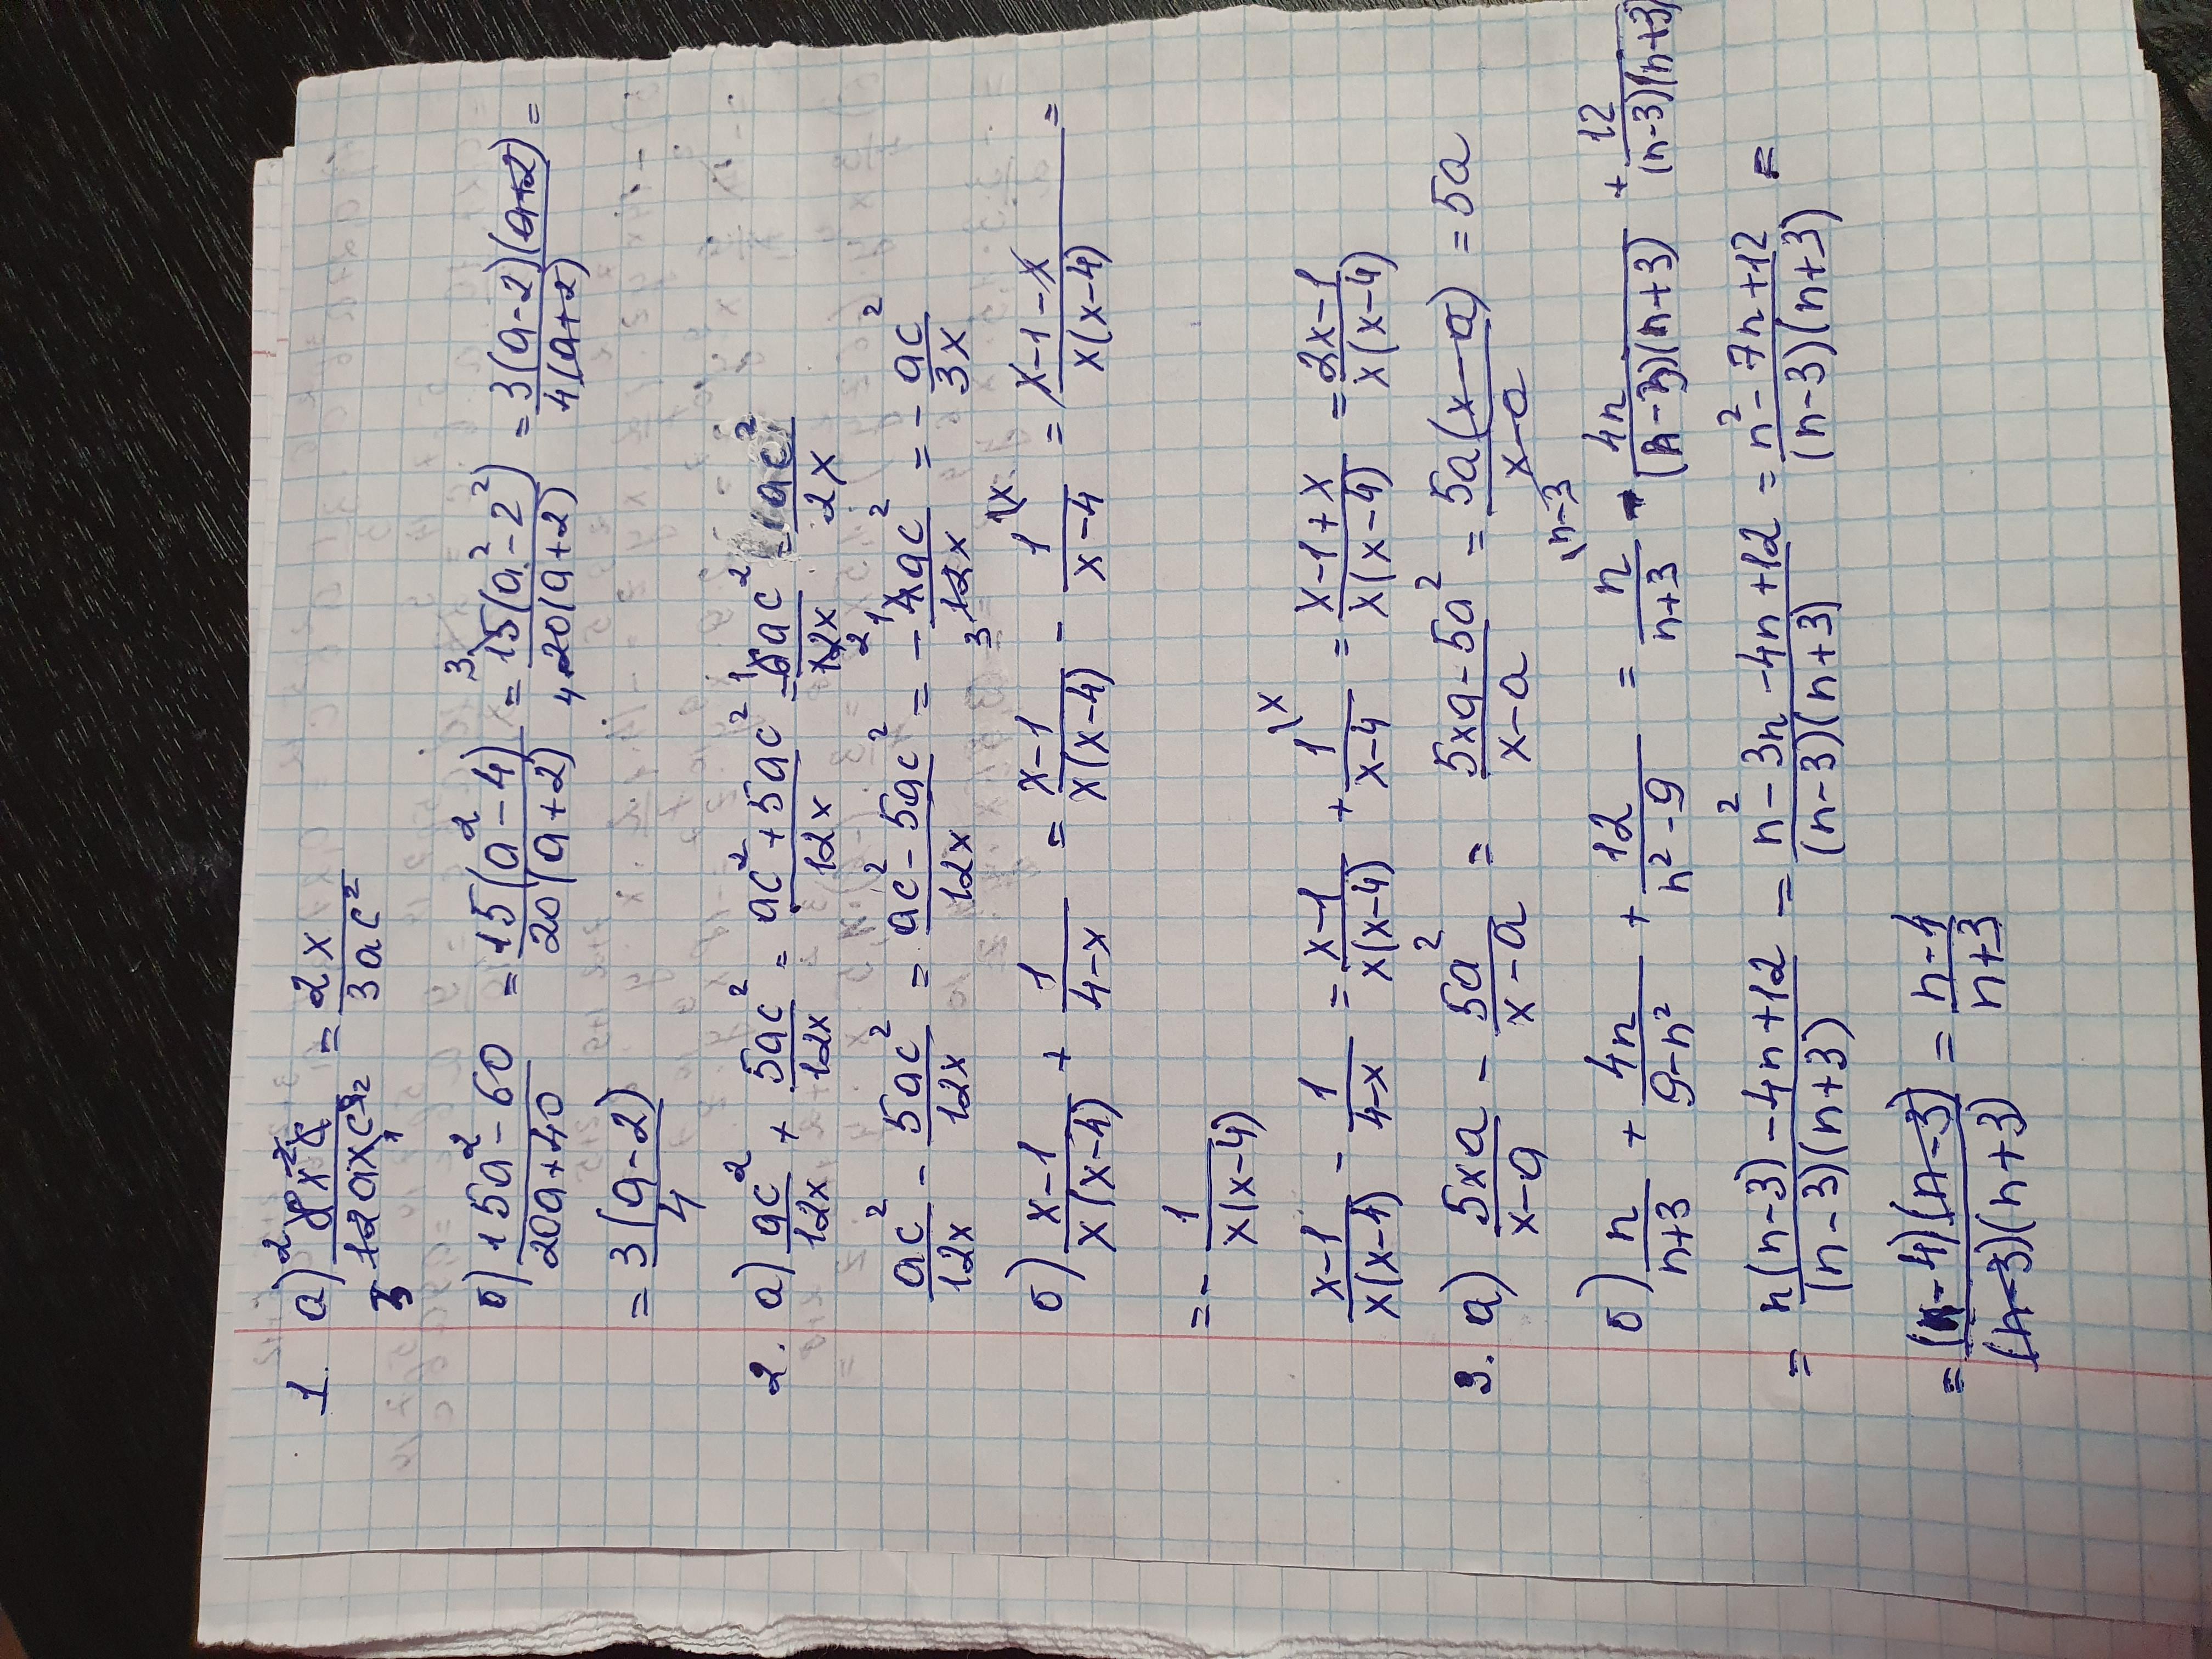 1. а) 8x²c / 12axc³ = 2x / 3ac²
б) (15a² - 60) / (20a + 40) = 15(a² - 4) / 20(a + 2) = 15(a² - 2²) / 20(a + 2) = 3(a - 2)(a + 2) / 4(a + 2) =
= 3(a - 2) / 4
2. а) ac² / 12x + 5ac² / 12x = (ac² + 5ac²) / 12x = 6ac² / 12x = 1ac² / 2x
ac² / 12x - 5ac² / 12x = (ac² - 5ac²) / 12x = - 4ac² / 12x = - ac² / 3x
б) (x - 1) / x(x - 4) + 1 / (4 - x) = (x - 1) / x(x - 4) - 1\x / (x - 4) = (x - 1 - x) / x(x - 4) =
= - 1 / x(x - 4)
(x - 1) / x(x - 4) - 1 / (4 - x) = (x - 1) / x(x - 4) + 1\x / (x - 4) = (x - 1 + x) / x(x - 4) = (2x - 1) / x(x - 4)
3. а) 5xa / (x - a) - 5a² / (x - a) = (5xa - 5a²) / (x - a) = 5a(x - a) / (x - a) = 5a
б) n / (n + 3) + 4n / (9 - n²) + 12 / (n² - 9) = n\n-3 / (n + 3) - 4n / (n - 3)(n + 3) + 12 / (n - 3)(n + 3)
= (n(n - 3) - 4n + 12) / (n - 3)(n + 3) = (n² - 3n - 4n + 12) / (n - 3)(n + 3) = (n² - 7n + 12) / (n - 3)(n + 3) =
= (n - 4)(n - 3) / (n - 3)(n + 3) = (n - 4) / (n + 3)